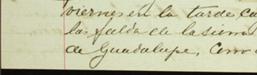 viernes en la tarde
la falda de la sierra
de Guadalupe, Cerro